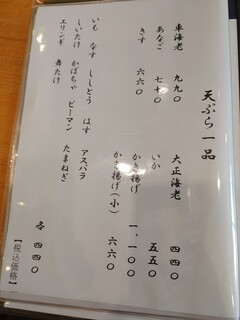 天ぷら一品
車海老 九九〇
大正海老 四四〇
あなご 七七〇
いか 五五〇
きす 六六〇
かき揚げ 一、一〇〇
かき揚げ(小) 六六〇
いも なす ししとう はす アスパラ
しいたけ かぼちゃ ピーマン たまねぎ
エリンギ 舞たけ
各 四四〇
【税込価格】